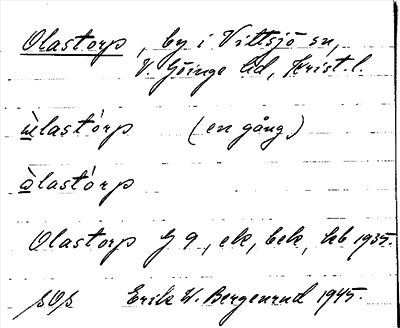 Olastorp, by i Vittsjö sn,
V. Göinge hd, Krist. l.
ùlastórp (en gång)
òlastórp
Olastorp G 9, ek, bek, hb 1935.
sOs Erik W. Bergenrud 1945.